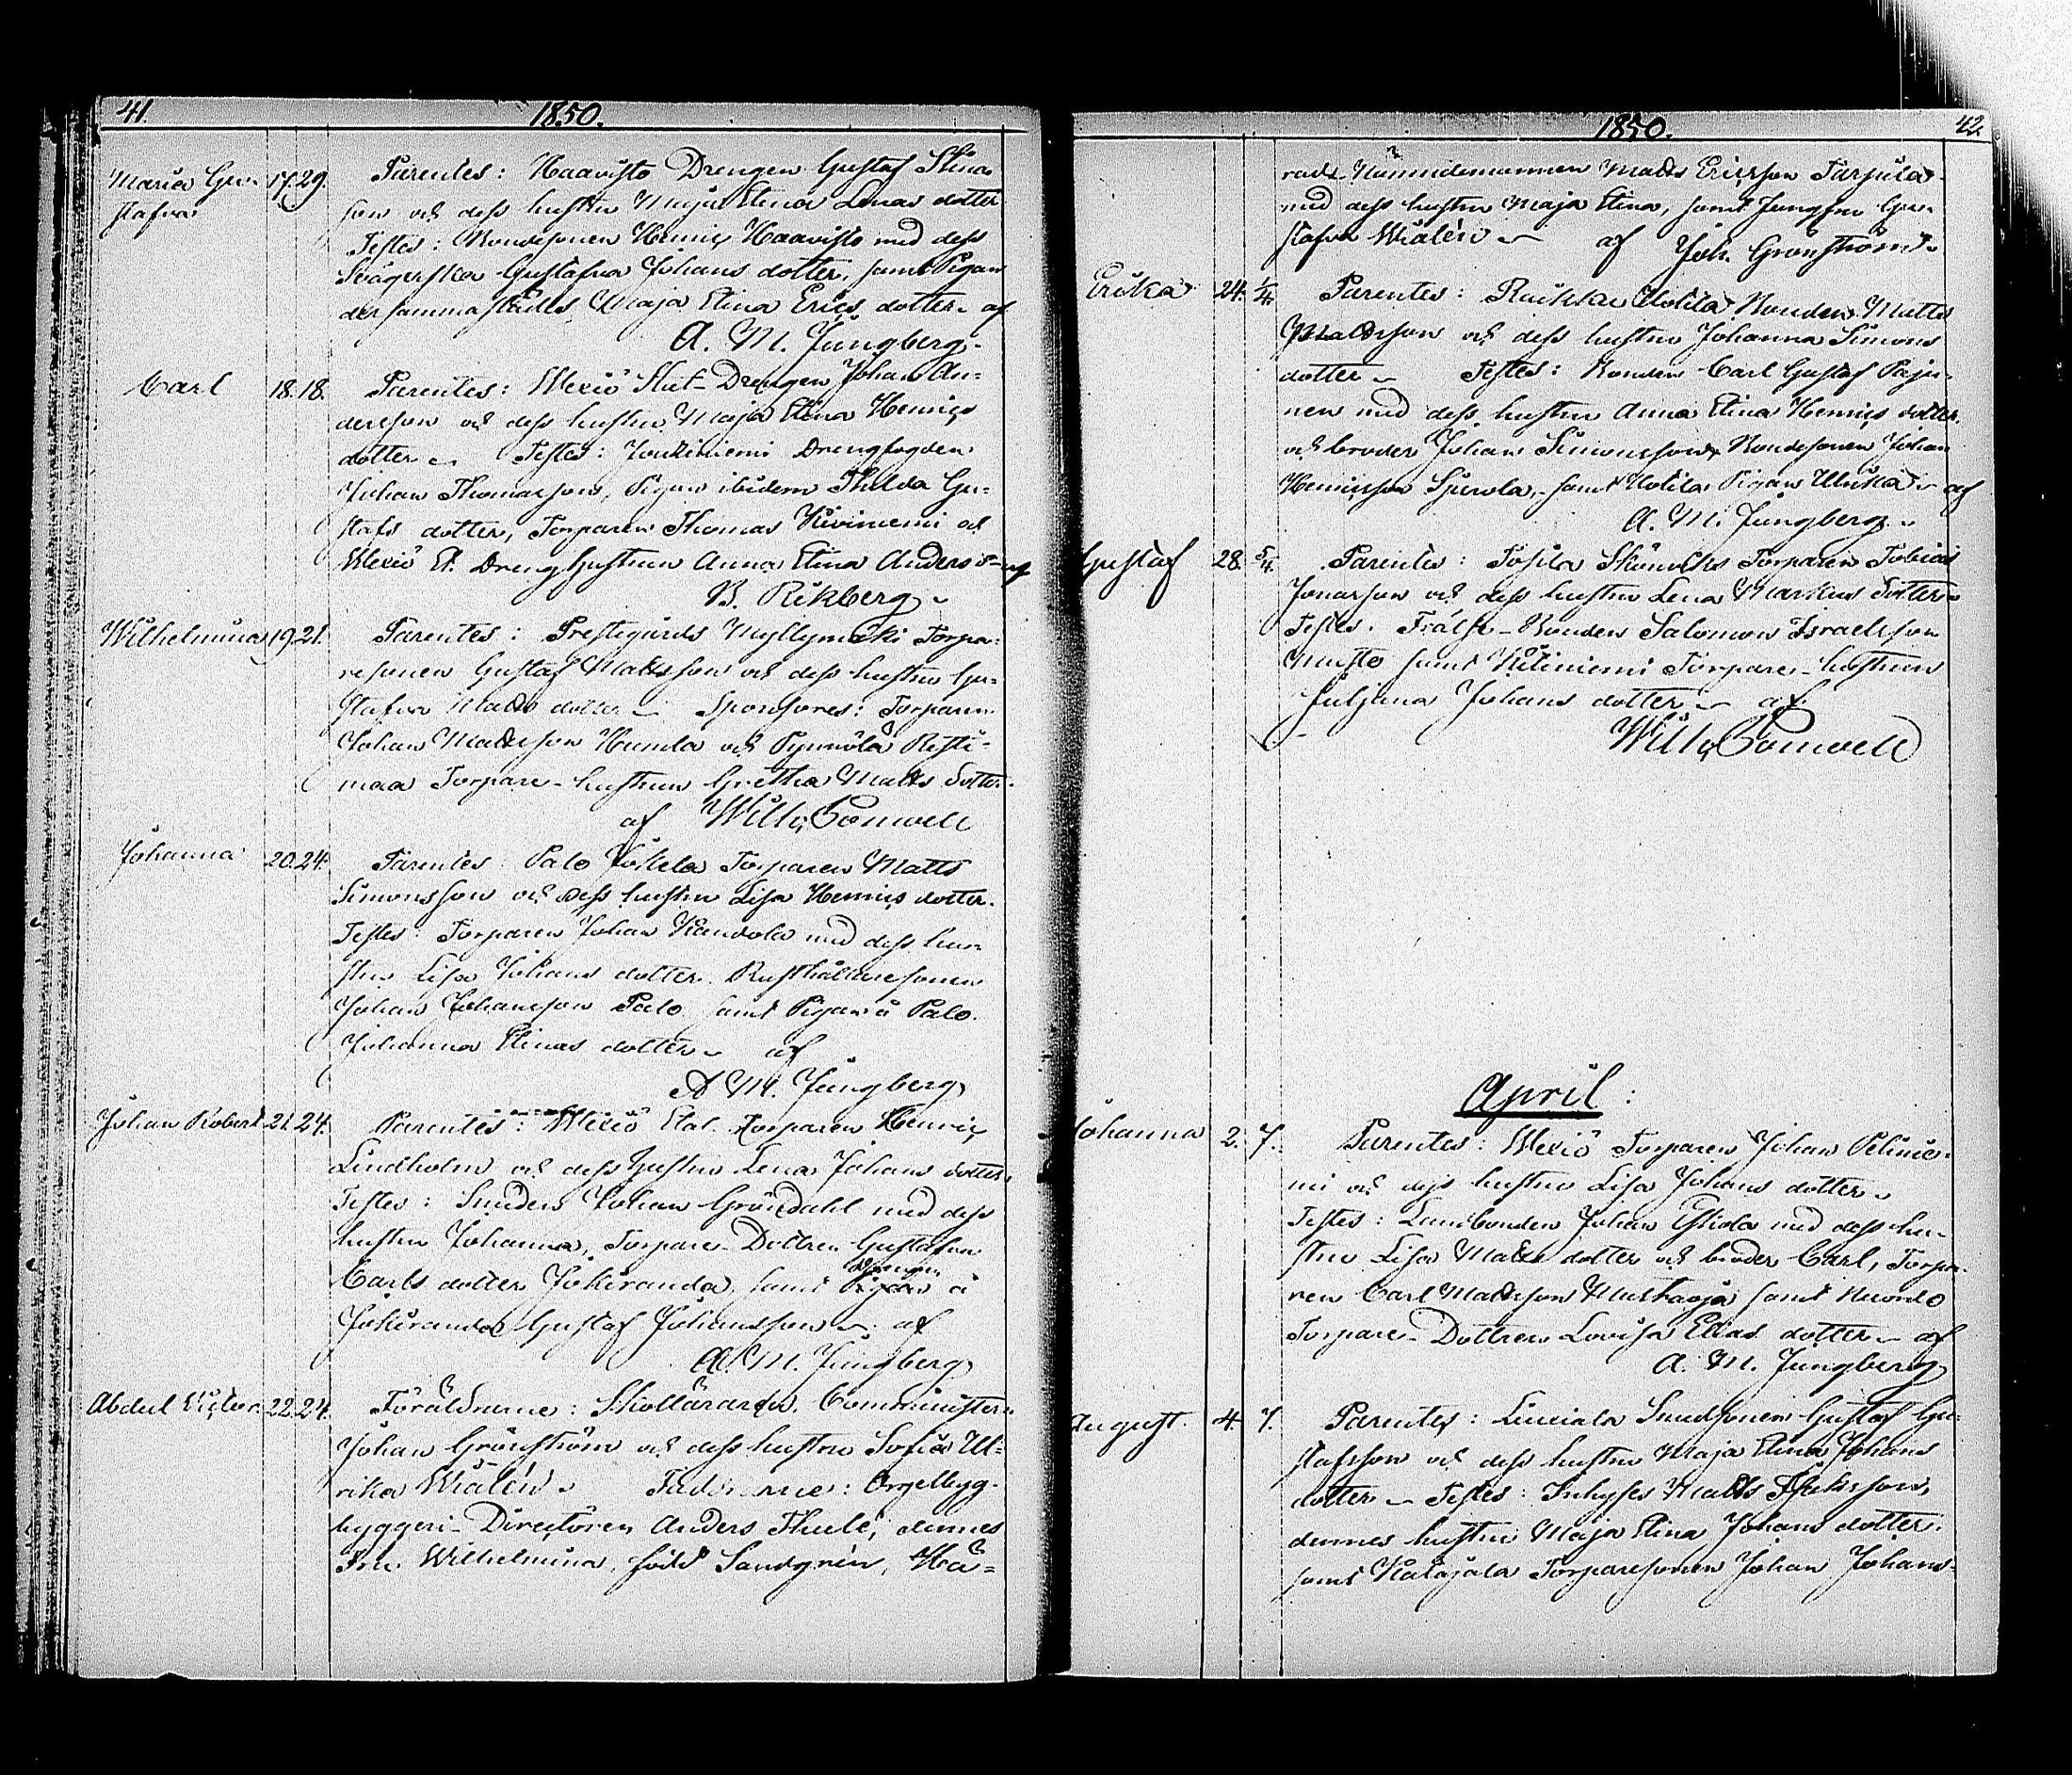 41. 1850.
Maria Gu- 17. 29. Parentes: Haavisto Drengen Gustaf Stina
stafva son och dess hustru Maja Stina Lenas dotter
Testes: Bondesonen Henric Haavisto med dess
Svägerska Gustafva Johans dotter, samt Pigan
dersammastädes Maja Stina Erics dotter. af
A. M. Jungberg.
Carl 18. 18. Parentes: Wexiö Stat-Drengen Johan An-
dersson och dess hustru Maja Stina Henrics
dotter. Testes: Drengfogden
Johan Thomasson, Pigan ibidem Thilda Gu-
stafs dotter, Torparen Thomas Kiviniemi och
Wexiö St. Dreng hustrun Anna Stina Anders d- af
B. Rikberg
Wilhelmina 19. 21. Parentes: Prestegårds Myllymäki Torpa-
resonen Gustaf Mattsson och dess hustru Gu-
stafva Matts dotter. Sponsores: Torparen
Johan Mattsson Humla och Pynnölä Risti-
maa Torpare-hustrun Gretha Matts dotter.
af Willg Comvell
Johanna 20. 24. Parentes: Palo Jokela Torparen Matts
Simonsson och dess hustru Lisa Henrics dotter.
Testes: Torparen Johan Kandola med dess hu-
stru Lisa Johans dotter. Rusthållaresonen
Johan Johansson Palo samt Pigan å Palo.
Johanna Stinas dotter. af
A. M. Jungberg
Johan Robert 21. 24. Parentes: Wexiö Stat. Torparen Henric
Lindholm och dess hustru Lena Johans dotter.
Testes: Smeden Johan Gröndahl med dess
hustru Johanna, Torpare-Dottren Gustafva
Carls dotter Jokiranda, samt Drengen å
Jokiranda Gustaf Johansson. af
A. M. Jungberg
Abdul Victor 22. 24. Föräldrarne: Skolläraren, Comminister
Johan Grönström och dess hustru Sofia Ul-
rika Widlén. Faddrarne: Orgelbygg-
byggeri-Directören Anders Thulé, dennes
Fru Wilhelmina, född Sandgrén, Hä-
1850. 42.
rads Nämndemannen Matts Ericsson Tarpila
med dess hustru Maja Stina, samt Jungfru Gu-
stafva Widlén. af Joh. Grönström.
Erica 24. 1/4. Parentes: Raikka Uotila Bonden Matts
Mattsson och dess hustru Johanna Simons
dotter. Testes: Bonden Carl Gustaf Paju-
nen med dess hustru Anna Stina Henrics dotter,
och broder Johan Simonsson, Bondesonen Johan
Henricsson Spurola, samt Uotila Pigan Ulrika. af
A. M. Jungberg
Gustaf 28. 5/4. Parentes: Torparen Tobias
Jonasson och dess hustru Lena Markus dotter.
Testes. Frälse-Bonden Salomon Israelsson
samt Kiliniemi Torpare-hustrun
Juljana Johans dotter. af
Willg Comvell
April:
Johanna 2. 7. Parentes: Wexiö Torparen Johan Peltinie-
mi och dess hustru Lisa Johans dotter.
Testes: Landbonden Johan Yliola med dess hu-
stru Lisa Matts dotter och broder Carl, Torpa-
ren Carl Mattsson Mustaoja samt
Torpare-Dottren Lovisa Elias dotter. af
A. M. Jungberg
August. 4. 7. Parentes: Luciala Smedsonen Gustaf Gu-
stafsson och dess hustru Maja Stina Johans
dotter. Testes: Inhyses Matts Isaksson,
dennes hustru Maja Stina Johans dotter.
samt Katajala Torparesonen Johan Johans-